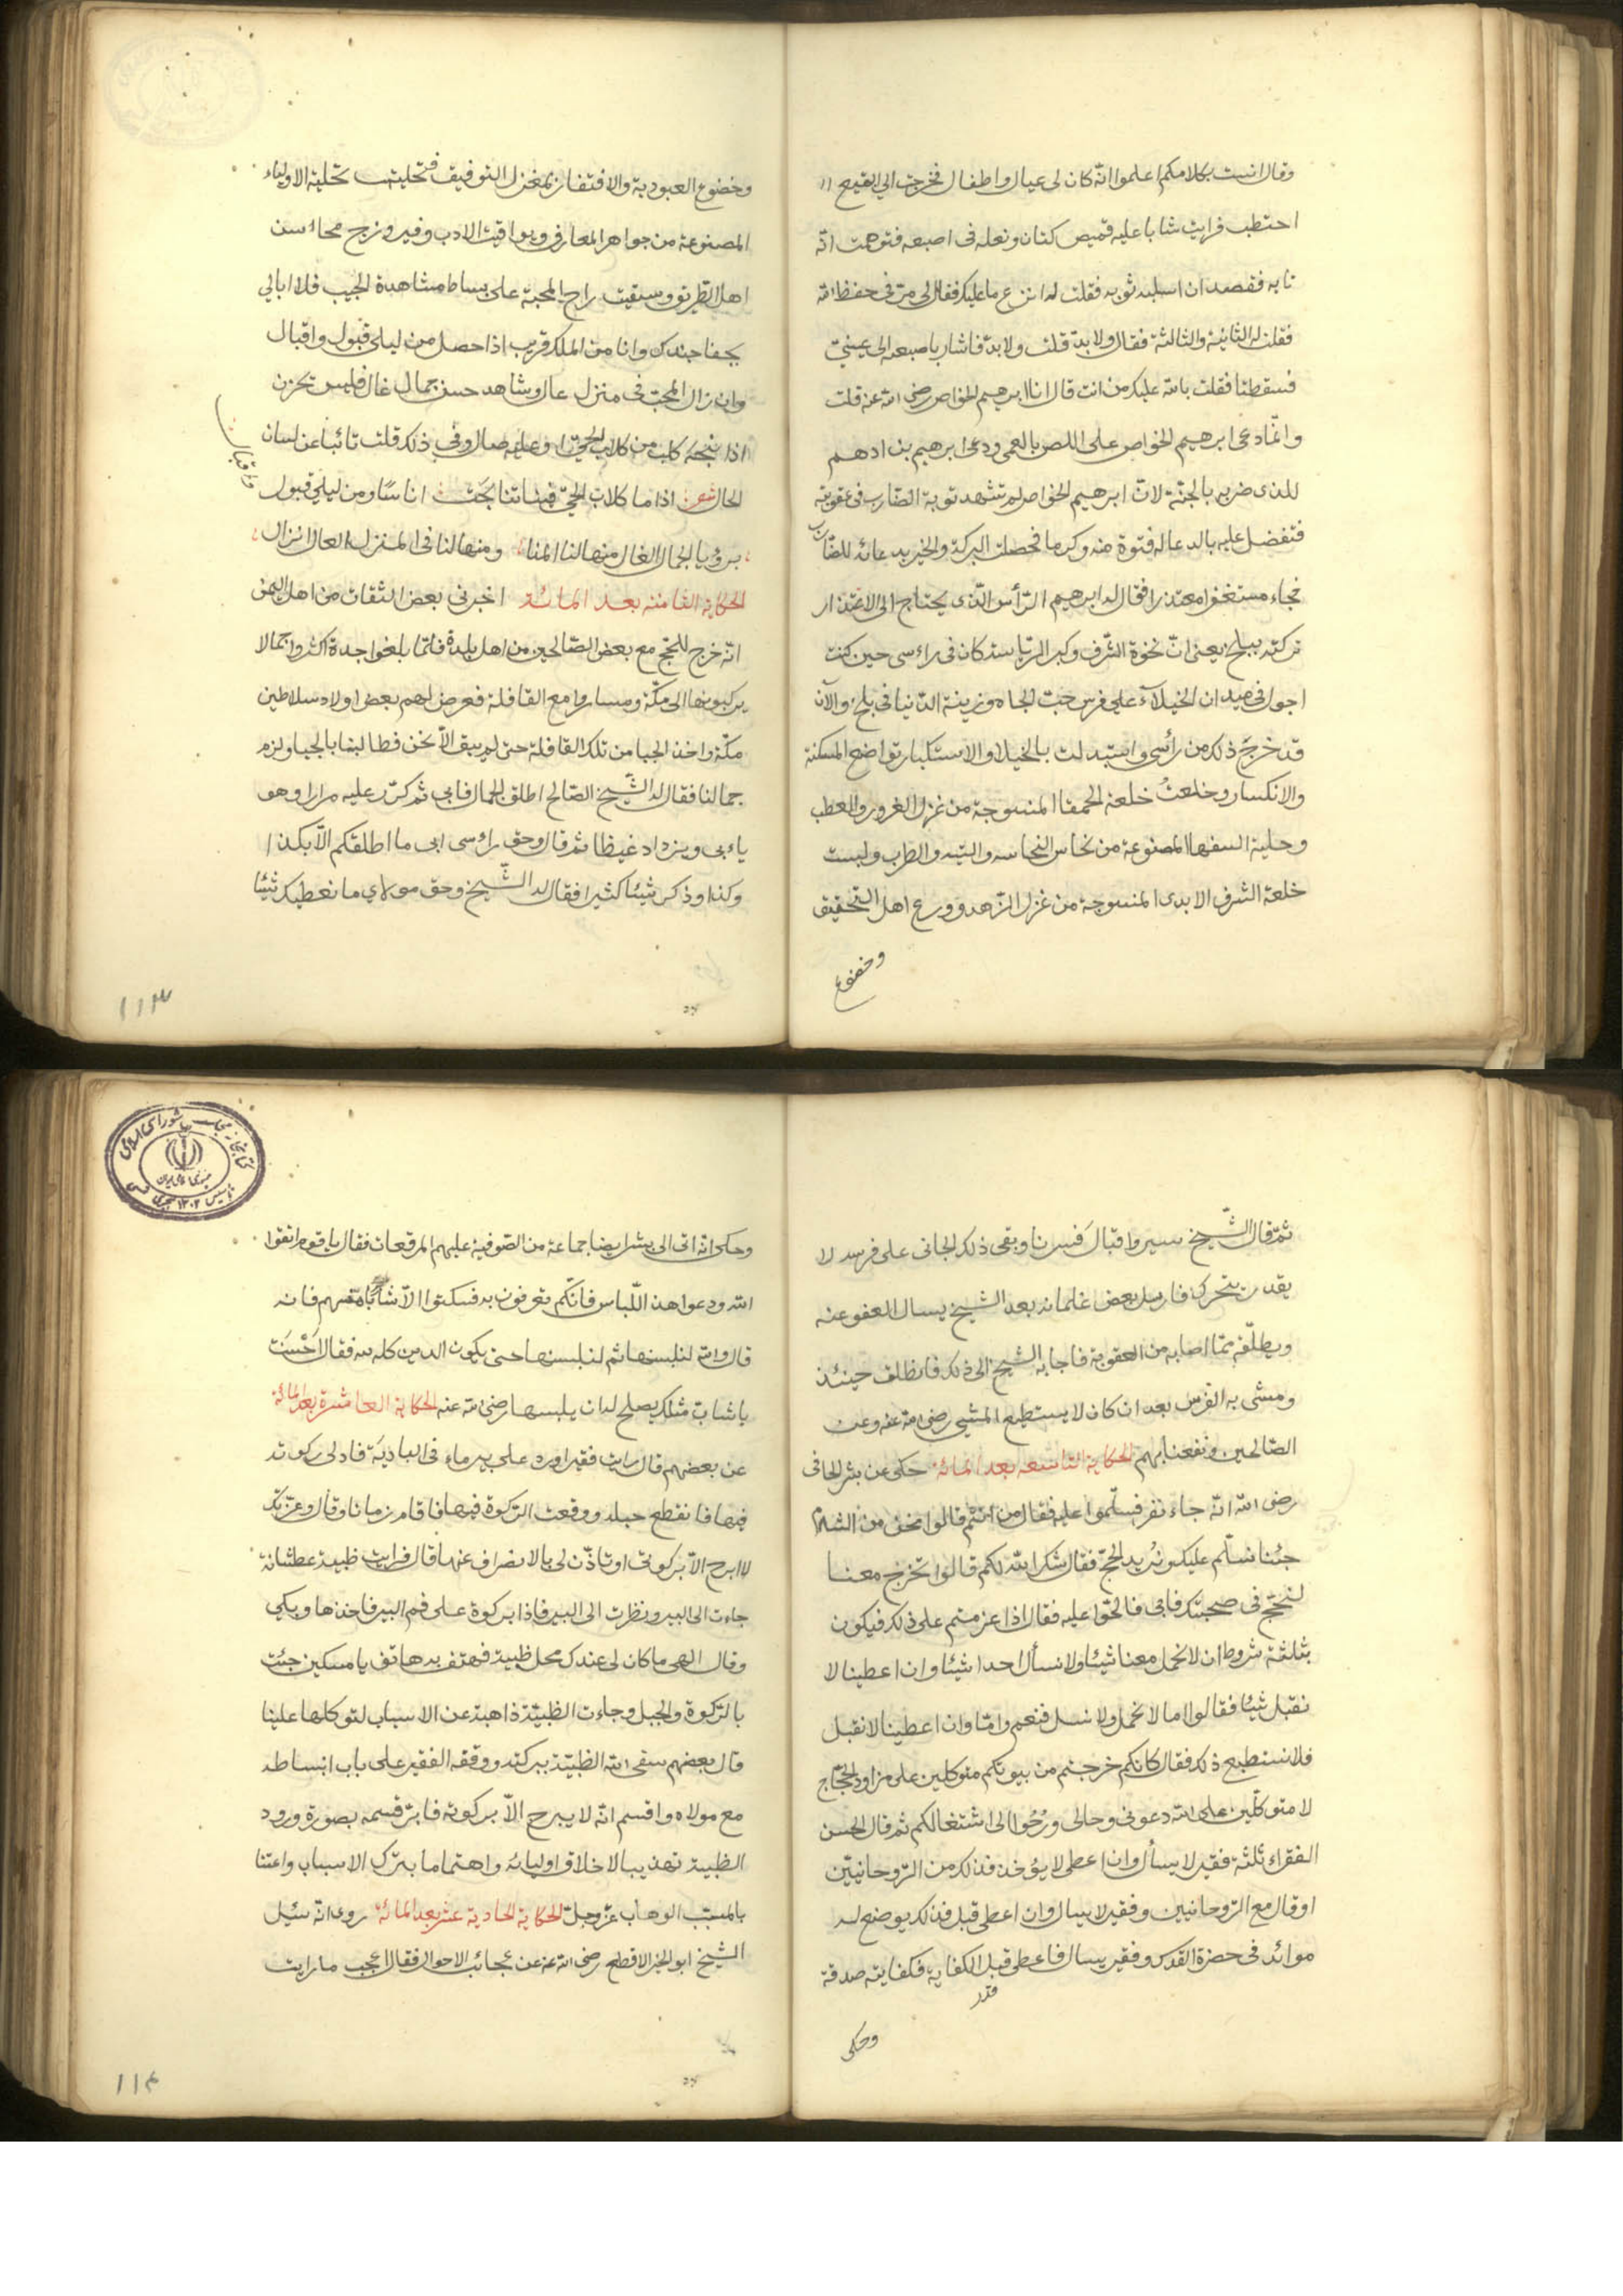 وقال انست بكلامكم اعلموا انّه كان لى عيال واطفال فخرجت الى البقيع
احتطب فرايت شابا عليه قميص كتان ونعله فى اصبعه فتوهمت انّه
تايه فقصدت ان اسلبه ثوبه فقلت له انزع ما عليك فقال لى مرّ فى حفظ الله
فقلت له الثانية والثالثة فقال ولا بدّ قلت ولا بدّ فاشار باصبعه الى عينيّ
فسقطتا فقلت بالله عليك من انت قال انا ابرهيم الخواص رضى الله عنه قلت
وانّما دعى ابرهيم الخواص على اللص بالعمى ودعى ابرهيم بن ادهم
للذى ضربه بالجنّة لانّ ابرهيم الخواص لم تشهد توبة الضّارب فى عقوبته
فتفضل عليه بالدعا له فتوة منه وكرما فحصلت البركة والخير بدعائه للضّارب
فجاء مستغفرا معتذرا فقال له ابرهيم الرّأس الّذى يحتاج الى الاعتذار
تركته ببلخ يعنى انّ نخوة الشّرف وكبر الرّياسة كان فى راءسى حين كنت
اجول فى ميدان الخيلآء على فرس حبّ الجاه وزينة الدّنيا فى بلخ والآن
قد خرج ذلك من رأسى واستبدلت بالخيلا والاستكبار تواضع المسكنة
والانكسار وخلعتُ خلعة الحمقا المنسوجة من غزل الغرور والعطب
وحلية السفها المصنوعة من نحاس النجاسه والتيه والطرب ولبست
خلعة الشرف الابدى المنسوجة من غزل الزّهد وورع اهل التّحقيق
وخضوع
وخضوع العبودية والافتقار بمغزل التوفيق فتحليت بحلية الاولياء
المصنوعة من جواهر المعارف ويواقيت الادب وفيروزج محاسن
اهل الطريق وسقيت راح المحبّة على بساط مشاهدة الحبيب فلا ابالى
بجفا جندك وانا من الملك قريب اذا حصل من ليلى قبول واقبال
وان نزل المحبّ فى منزل عال وشاهد حسن جمال غال فليس يحزن
اذا نبحه كلب من كلاب الحىّ او عليه صال وفى ذلك قلت نائبا عن لسان
الحال شعر اذا ما كلاب الحىّ فينا تنابحَت اناسًا ومن ليلى قبول
واقبال
برؤيا الجمال الغال منها لنا المنا ومنها لنا فى المنزل العال انزال
الحكاية الثامنة بعد المائة اخبرنى بعض الثقات من اهل اليمن
انّه خرج للحج مع بعض الصّالحين من اهل بلدة فلمّا بلغوا جدة اكتروا جمالا
يركبونها الى مكّة وساروا مع القافلة فعرض لهم بعض اولاد سلاطين
مكّة واخذ الجبا من تلك القافلة حتى لم يبق الّا نحن فطالبنا بالجبا ولزم
جمالنا فقال له الشّيخ الصّالح اطلق الجمال فابى ثم كرّر عليه مرارا وهو
ياءبى ويزداد غيظا ثم قال وحق راءسى ابى ما اطلقكم الّا بكذا
وكذا وذكر شيئا كثيرا فقال له الشّيخ وحق مولاي ما نعطيك شيئا
١١٣
ثمّ قال الشّيخ سيروا قبال فسرنا وبقى ذلك الجانى على فرسه لا
يقدر يتحرك فارسل بعض غلمانه بعد الشّيخ يسال العفو عنه
ويطلّقه ممّا اصابه من العقوبة فاجابه الشّيخ الى ذلك فانطلق حينئذ
ومشى به الفرس بعد ان كان لا يستطيع المشى رضى الله عنه وعن
الصّالحين ونفعنا بهم الحكاية التاسعه بعد المائة حكى عن بشر الحافى
رضى الله انّه جاء نفر فسلّموا عليه فقال من انتُم قالوا نحن من الشام
جئنا نسلّم عليك ونُريد الحجّ فقال شكر الله لكم قالوا تخرج معنا
لنحجّ فى صحبتك فابى فالحّوا عليه فقال اذا عزمتم على ذلك فيكون
بثلثة شروط ان لا نحمل معنا شيئا ولا نسأل احدا شيئا وان اعطينا لا
نقبل شيئا فقالوا اما لا نحمل ولا نسل فنعم وامّا وان اعطينا لا نقبل
فلا نستطيع ذلك فقال كانكم خرجتم من بيوتكم متوكلين على مزاود الحجّاج
لا متوكلّين على الله دعونى وحالى ورُحُوا الى اشتغالكم ثم قال الحسن
الفقراء ثلثة فقير لا يسأل وان اعطى لا يؤخذ فذلك من الرّوحانيّين
او قال مع الرّوحانيين وفقير لا يسال وان اعطى قبل فذلك يوضع له
موائد فى حضرة القدس وفقير يسال فاعطى قبل الكفاية فكفايته صدقة
قدر
وحكى
وحكى انّه اتى الى بشر ايضا جماعة من الصّوفية عليهم المرقعات فقال يا قوم اتقوا
الله ودعوا هذا اللّباس فانّكم تعرفون به فسكتوا الّا شابا منهم فانه
قال والله لنلبسنها ثم لنلبسنها حتى يكون الدين كله لله فقال احْسَنت
يا شابّ مثلك يصلح له ان يلبسها رضى الله عنه الحكاية العاشرة بعد المائة
عن بعضهم قال رايت فقيرا ورد على بير ماء فى الباديَة فادلى ركوته
فيها فانقطع حبله ووقعت الرّكوة فيها فاقام زمانا وقال وعزّتك
لا ابرح الّا بركوتى او تاذّن لى بالانصراف عنها قال فرايت ظبية عطشانة
جاءت الى البير ونظرت الى البير فاذا بركوة على فم البير فاخذها وبكى
وقال الهى ما كان لى عندك محل ظبية فهتف به هاتف يا مسكين جئت
بالرّكوة والحبل وجاءت الظبيّة ذاهبة عن الاسباب لتوكلها علينا
قال بعضهم سقى الله الظبيّة ببركته ووقفه الفقير على باب انبساطه
مع مولاه واقسم انّه لا يبرح الّا بركوته فابرّ قسمه بصورة ورود
الظبية تهذيبا لاخلاق اوليائه واهتماما بترك الاسباب واعتنا
بالمسبّب الوهاب عزّ وجلّ الحكاية الحادية عشر بعد المائة روى انّه سئيل
الشّيخ ابو الخير الاقطع رضى الله عنه عن عجائب الاحوال فقال اعجب ما رايت
١١٤